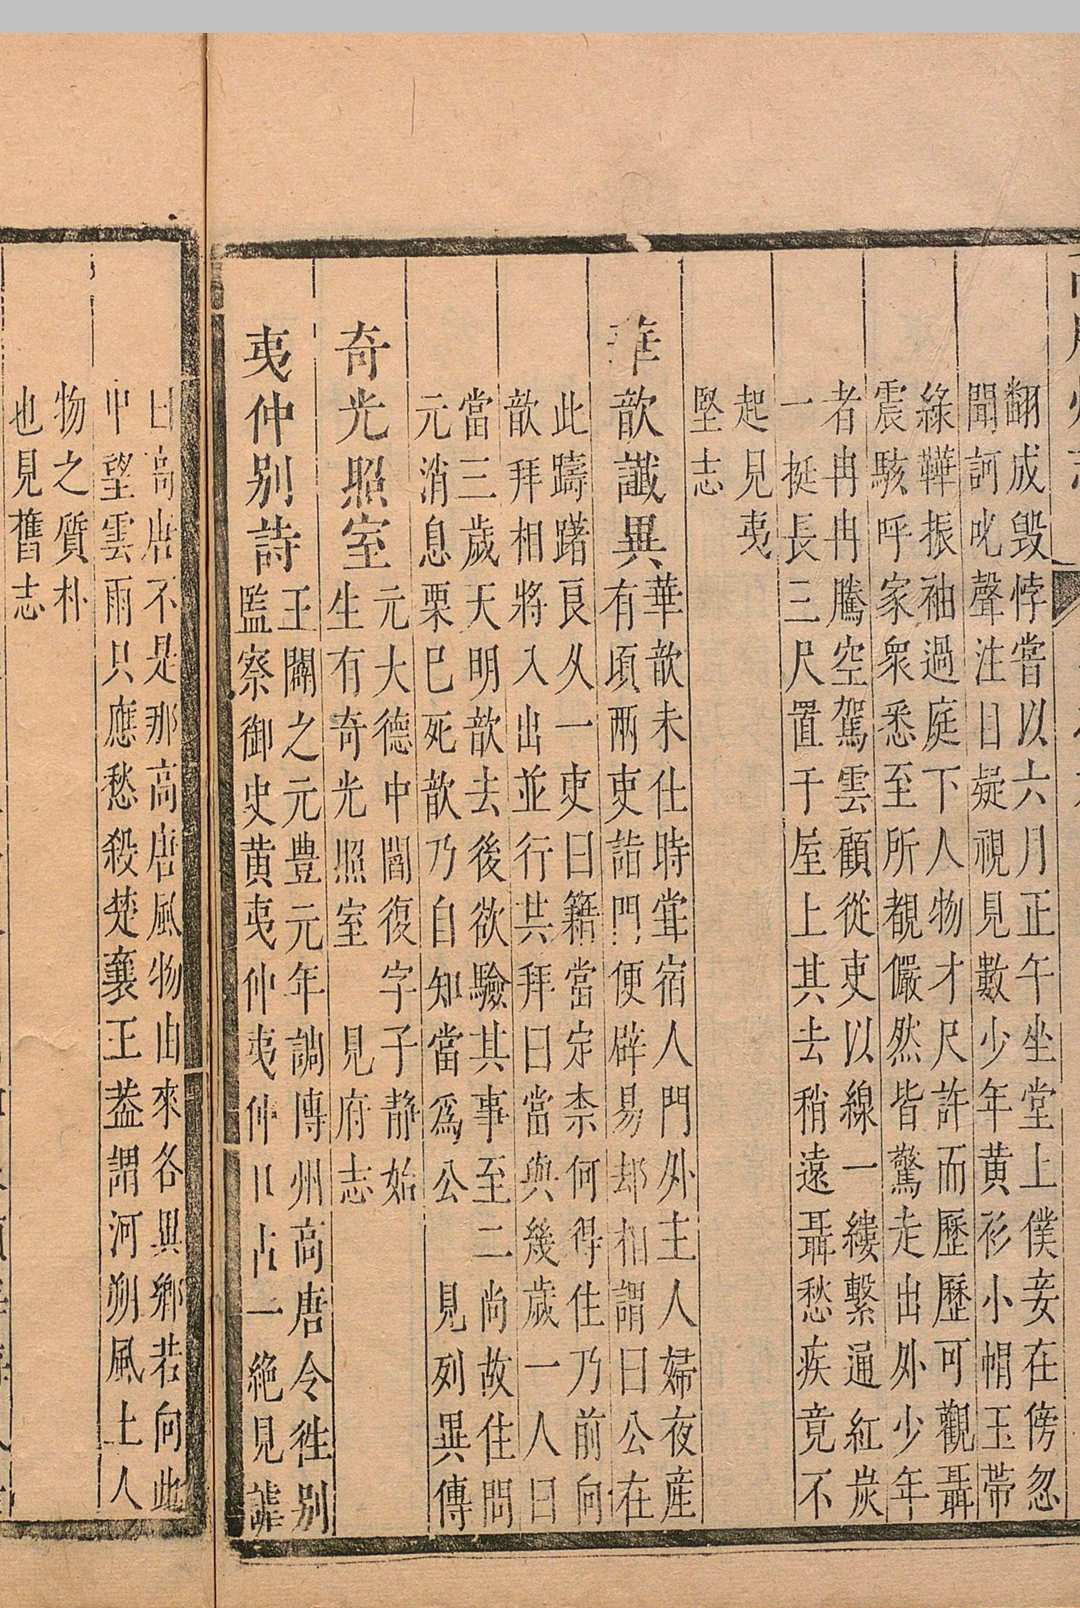 翻成毁悖嘗以六月正午坐堂上僕妾在傍忽
聞訶叱聲注目疑視見數少年黄衫小帽玉帶
綠鞾振袖過庭下人物才尺許而歷歷可觀聶
震駭呼家衆悉至所覩儼然皆驚走出外少年
者冉冉騰空駕雲顧從吏以線一縷繫通紅炭
一挺長三尺置于屋上其去稍遠聶愁疾竟不
起見夷
堅志
華歆讖異
華歆未仕時嘗宿人門外主人婦夜産
有頃兩吏詣門便辟易却相謂曰公在
此躊躇良久一吏曰籍當定柰何得住乃前向
歆拜相將入出並行共拜曰當與幾歲一人曰
當三歲天明歆去後欲驗其事至二尚故往問
元消息栗已死歆乃自知當爲公 見列異傳
奇光照室
元大德中閻復字子静始
生有奇光照室 見府志
夷仲别詩
王闢之元豊元年調博州高唐令徃别
監察御史黄夷仲夷仲口占一絶見謔
曰高唐不是那高唐風物由來各異鄉若向此
中望雲雨只應愁殺楚襄王葢謂河朔風土人
物之質朴
也見舊志